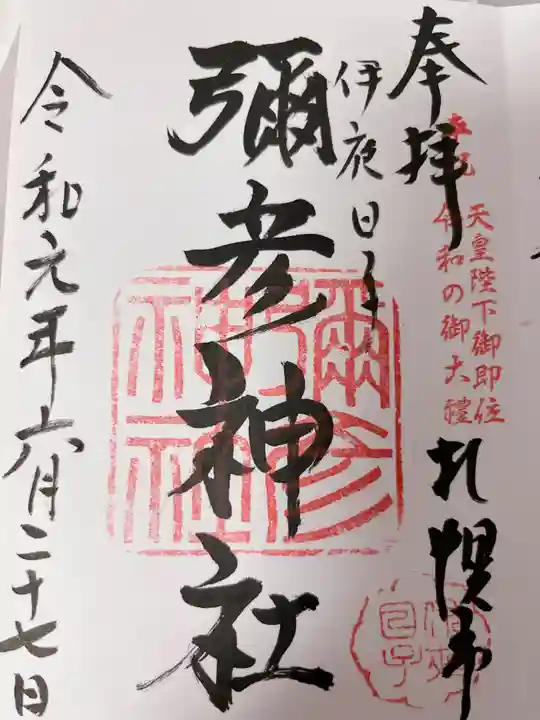 奉拝
札幌市
奉祝
天皇陛下御即位
令和の御大禮
伊夜日子
彌彦神社
彌彦神社
令和元年六月二十七日